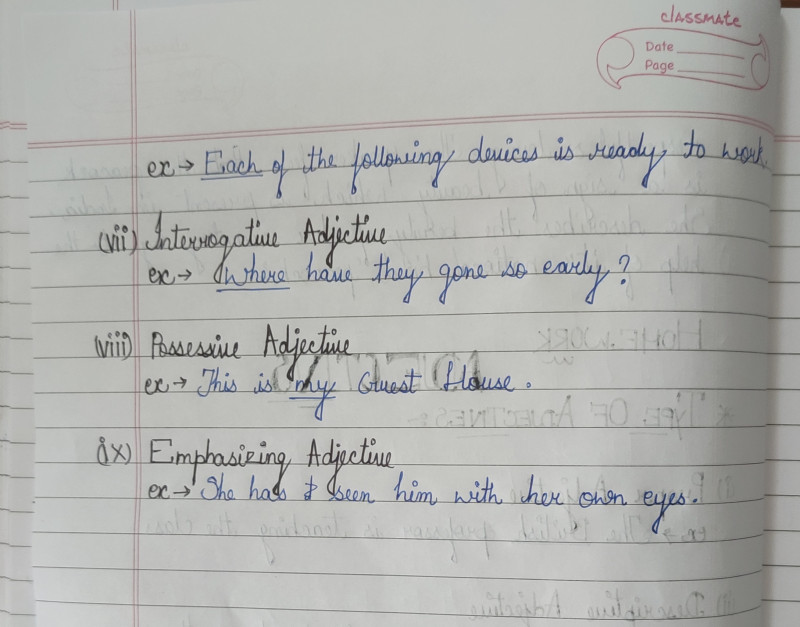 classmate
Date
Page
ex → Each of the following devices is ready to work.
(vii) Interrogative Adjective
ex → Where have they gone so early?
(viii) Possessive Adjective
ex → This is my Guest House.
(ix) Emphasizing Adjective
ex → She has seen him with her own eyes.